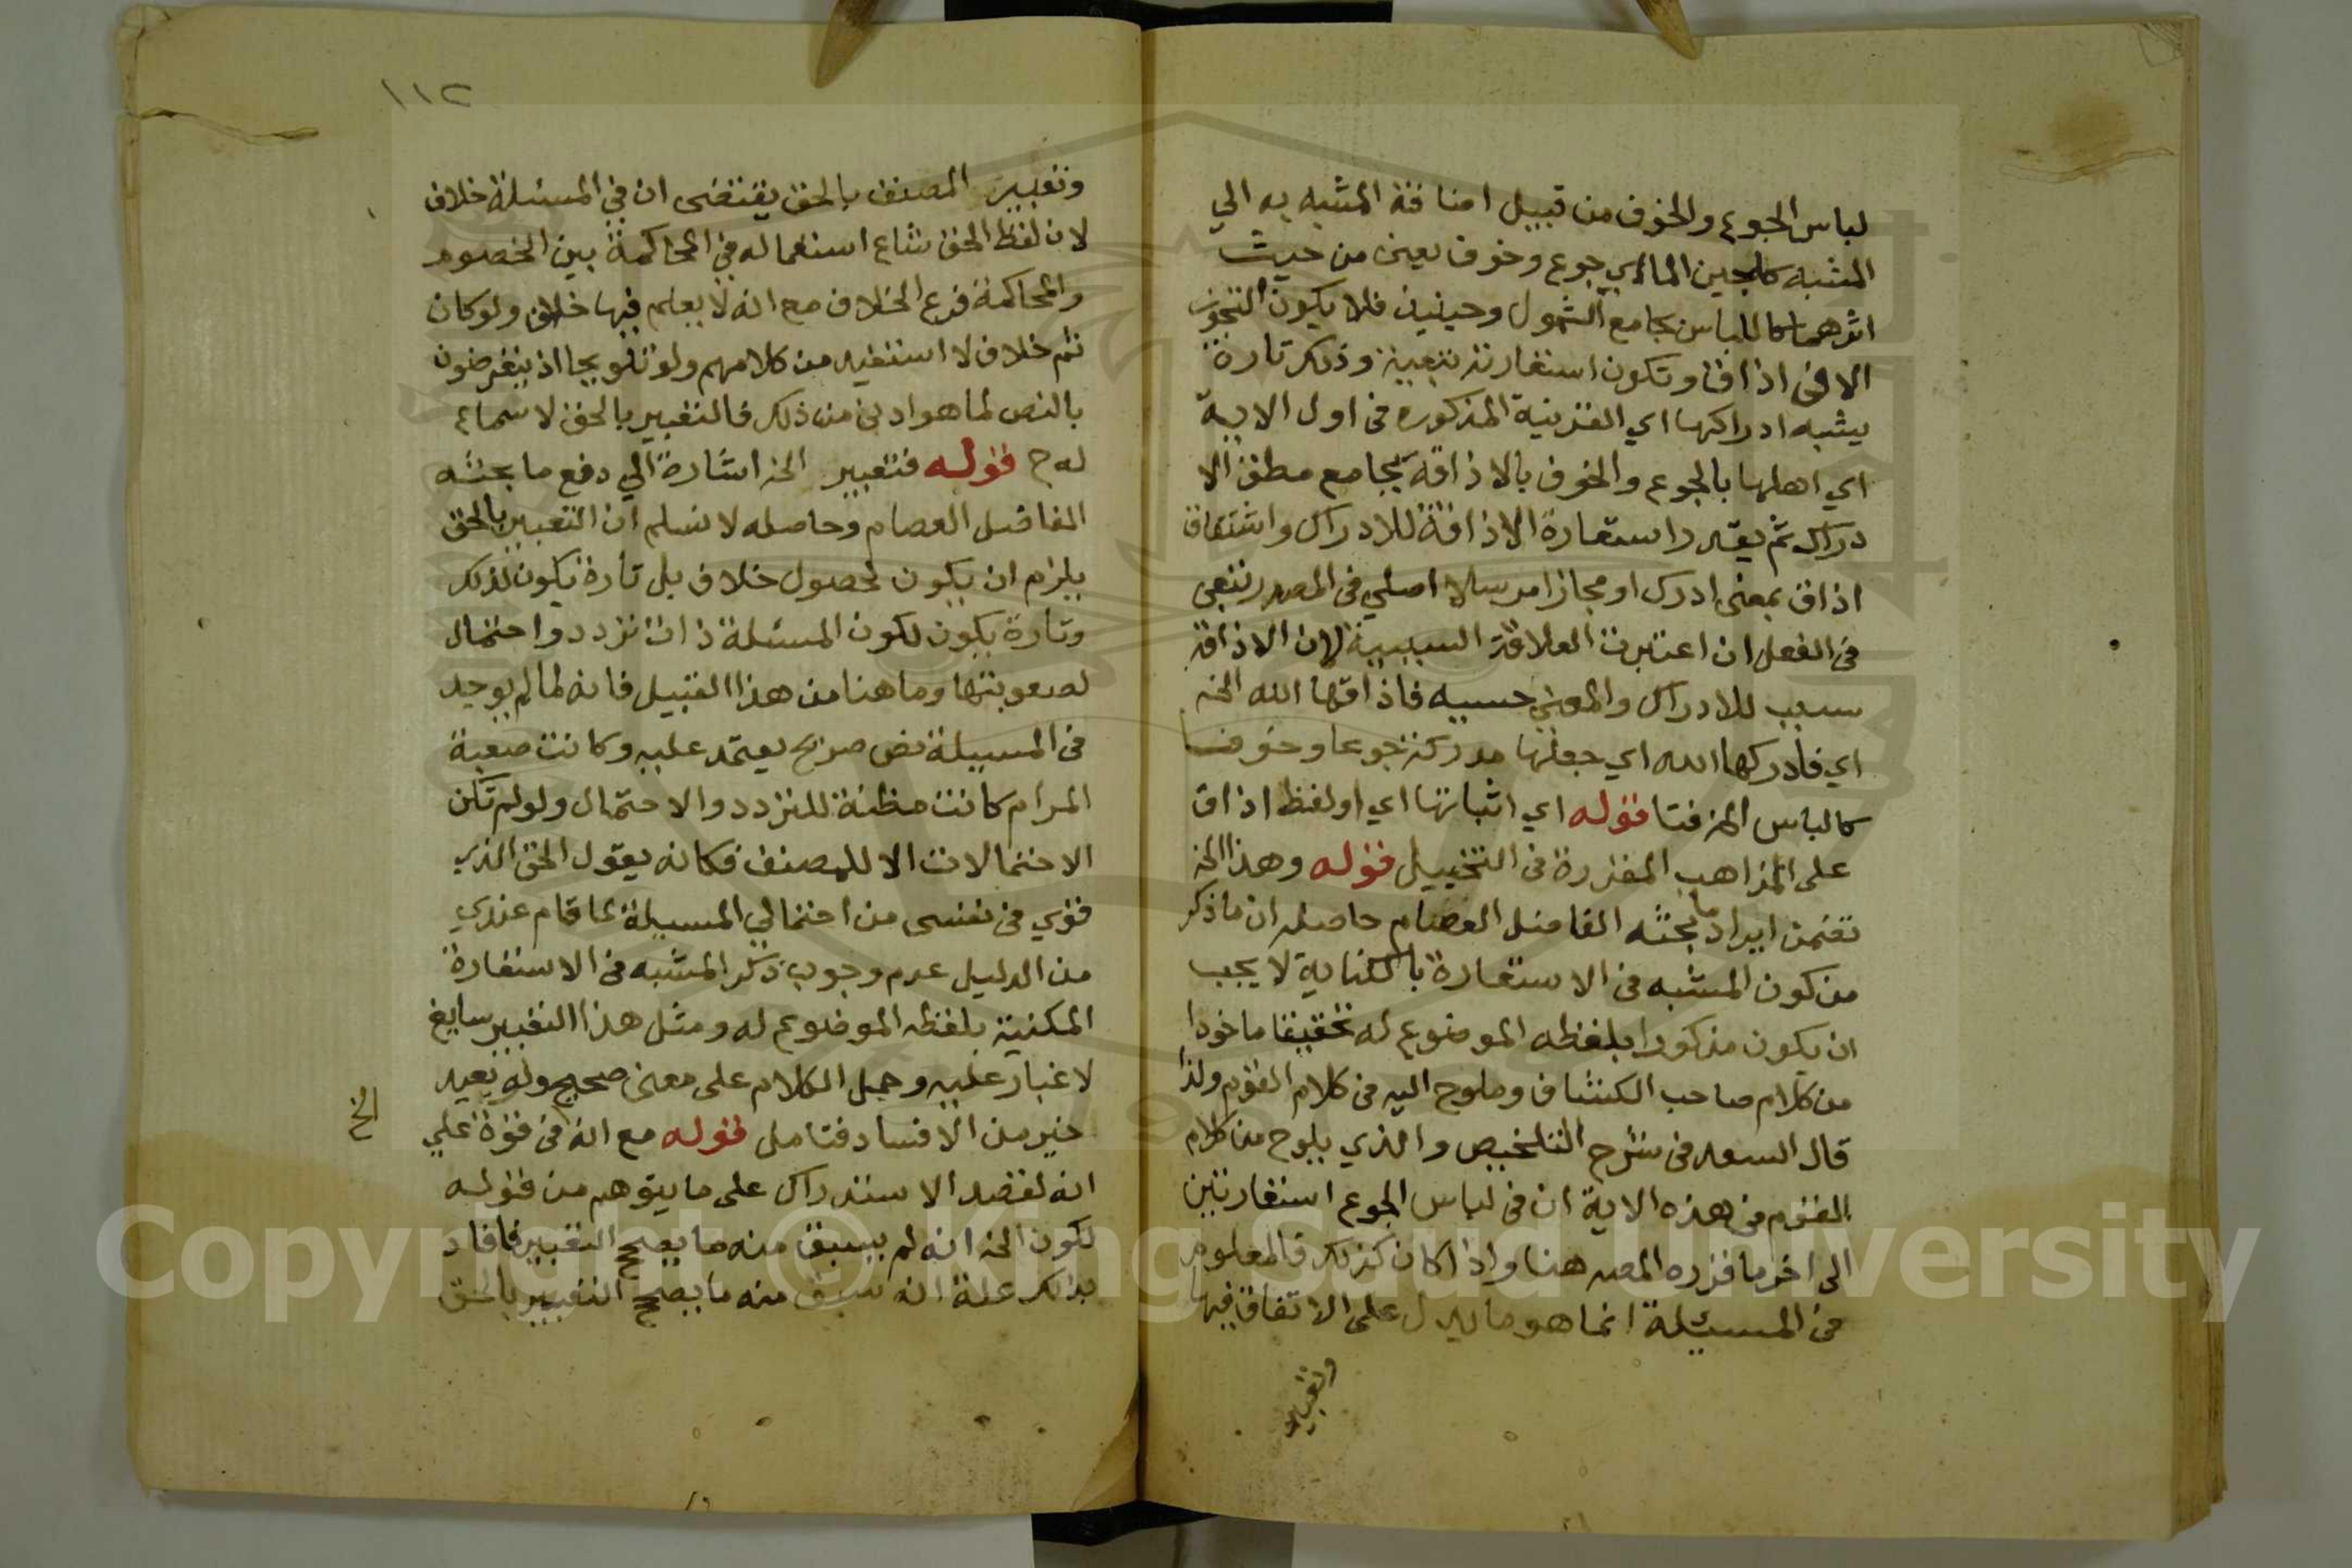 لباس الجوع والخوف من قبيل اضافة المشبه به الي
المشبه كلجين الما اي جوع وخوف يعني من حيث
اثرهما كاللباس بجامع الشمول وحينيذ فلا يكون التجوز
الا في اذاق او تكون استعارته تبعية وذلك تارة
يشبه ادراكها اي القرية المذكوره في اول الاية
اي اهلها بالجوع والخوف بالاذاقة بجامع مطلق الا
دراك ثم يقدر استعارة الاذاقة للادراك واشتقاق
اذاق بمعنى ادرك او مجازا مرسلا اصلي في المصدر تبعي
في الفعل ان اعتبرت العلاقة السببية لان الاذاقة
سبب للادراك والمعنى حسيه فاذاقها الله الخ
اي فادركها الله اي جعلها مدركة جوعا وخوفا
كالباس المز فتا قوله اي اثباتها اي او لفظ اذاق
على المذاهب المقررة في التخييل قوله وهذا الخ
تضمن ايراد ما بحثه الفاضل العصام حاصله ان ما ذكر
من كون المشبه في الاستعارة بالكناية لا يجب
ان يكون مذكورا بلفظه الموضوع له تحقيقا ماخوذا
من كلام صاحب الكشاف وملوح اليه في كلام القوم ولذا
قال السعد في شرح التلخيص والذي يلوح من كلام
القوم في هذه الاية ان في لباس الجوع استعارتين
الى اخر ما قرره المصه هنا واذا كان كذلك فالمعلوم
في المسيئلة انما هو ما يدل على الاتفاق فيها
وتعبير
١١٢
وتعبير المصنف بالحق يقتضى ان في المسئلة خلاف
لان لفظ الحق شاع استعماله في المحاكمة بين الخصوم
والمحاكمة فرع الخلاف مع انه لا يعلم فيها خلاف ولو كان
ثم خلاف لا استفيد من كلامهم ولو تلويحا اذ يتعرضون
بالنص لما هو ادني من ذلك فالتعبير بالحق لا سماع
له ح قوله فتعبير الخ اشارة الي دفع ما بحثه
الفاضل العصام وحاصله لا نسلم ان التعبير بالحق
يلزم ان يكون لحصول خلاف بل تارة يكون لذلك
وتارة يكون لكون المسئلة ذات تردد واحتمال
لصعوبتها وما هنا من هذا القبيل فانه لما لم يوجد
في المسيلة نص صريح يعتمد عليه وكانت صعبة
المرام كانت مظنة للتردد والاحتمال ولو لم تكن
الاحتمالات الا للمصنف فكانه يقول الحق الذي
قوي في نفسى من احتمالي المسيلة لما قام عندي
من الدليل عدم وجوب ذكر المشبه في الاستعارة
المكنية بلفظه الموضوع له ومثل هذا التعبير سايغ
لا غبار عليه وحمل الكلام على معنى صحيح ولو بعيد
خير من الافساد فتامل قوله مع انه في قوة علي
الخ
انه لقصد الاستدراك على ما يتوهم من قوله
لكون الخ انه لم يسبق منه ما يصحح التعبير فافاد
بذلك علة انه سبق منه ما يصحح التعبير بالحق